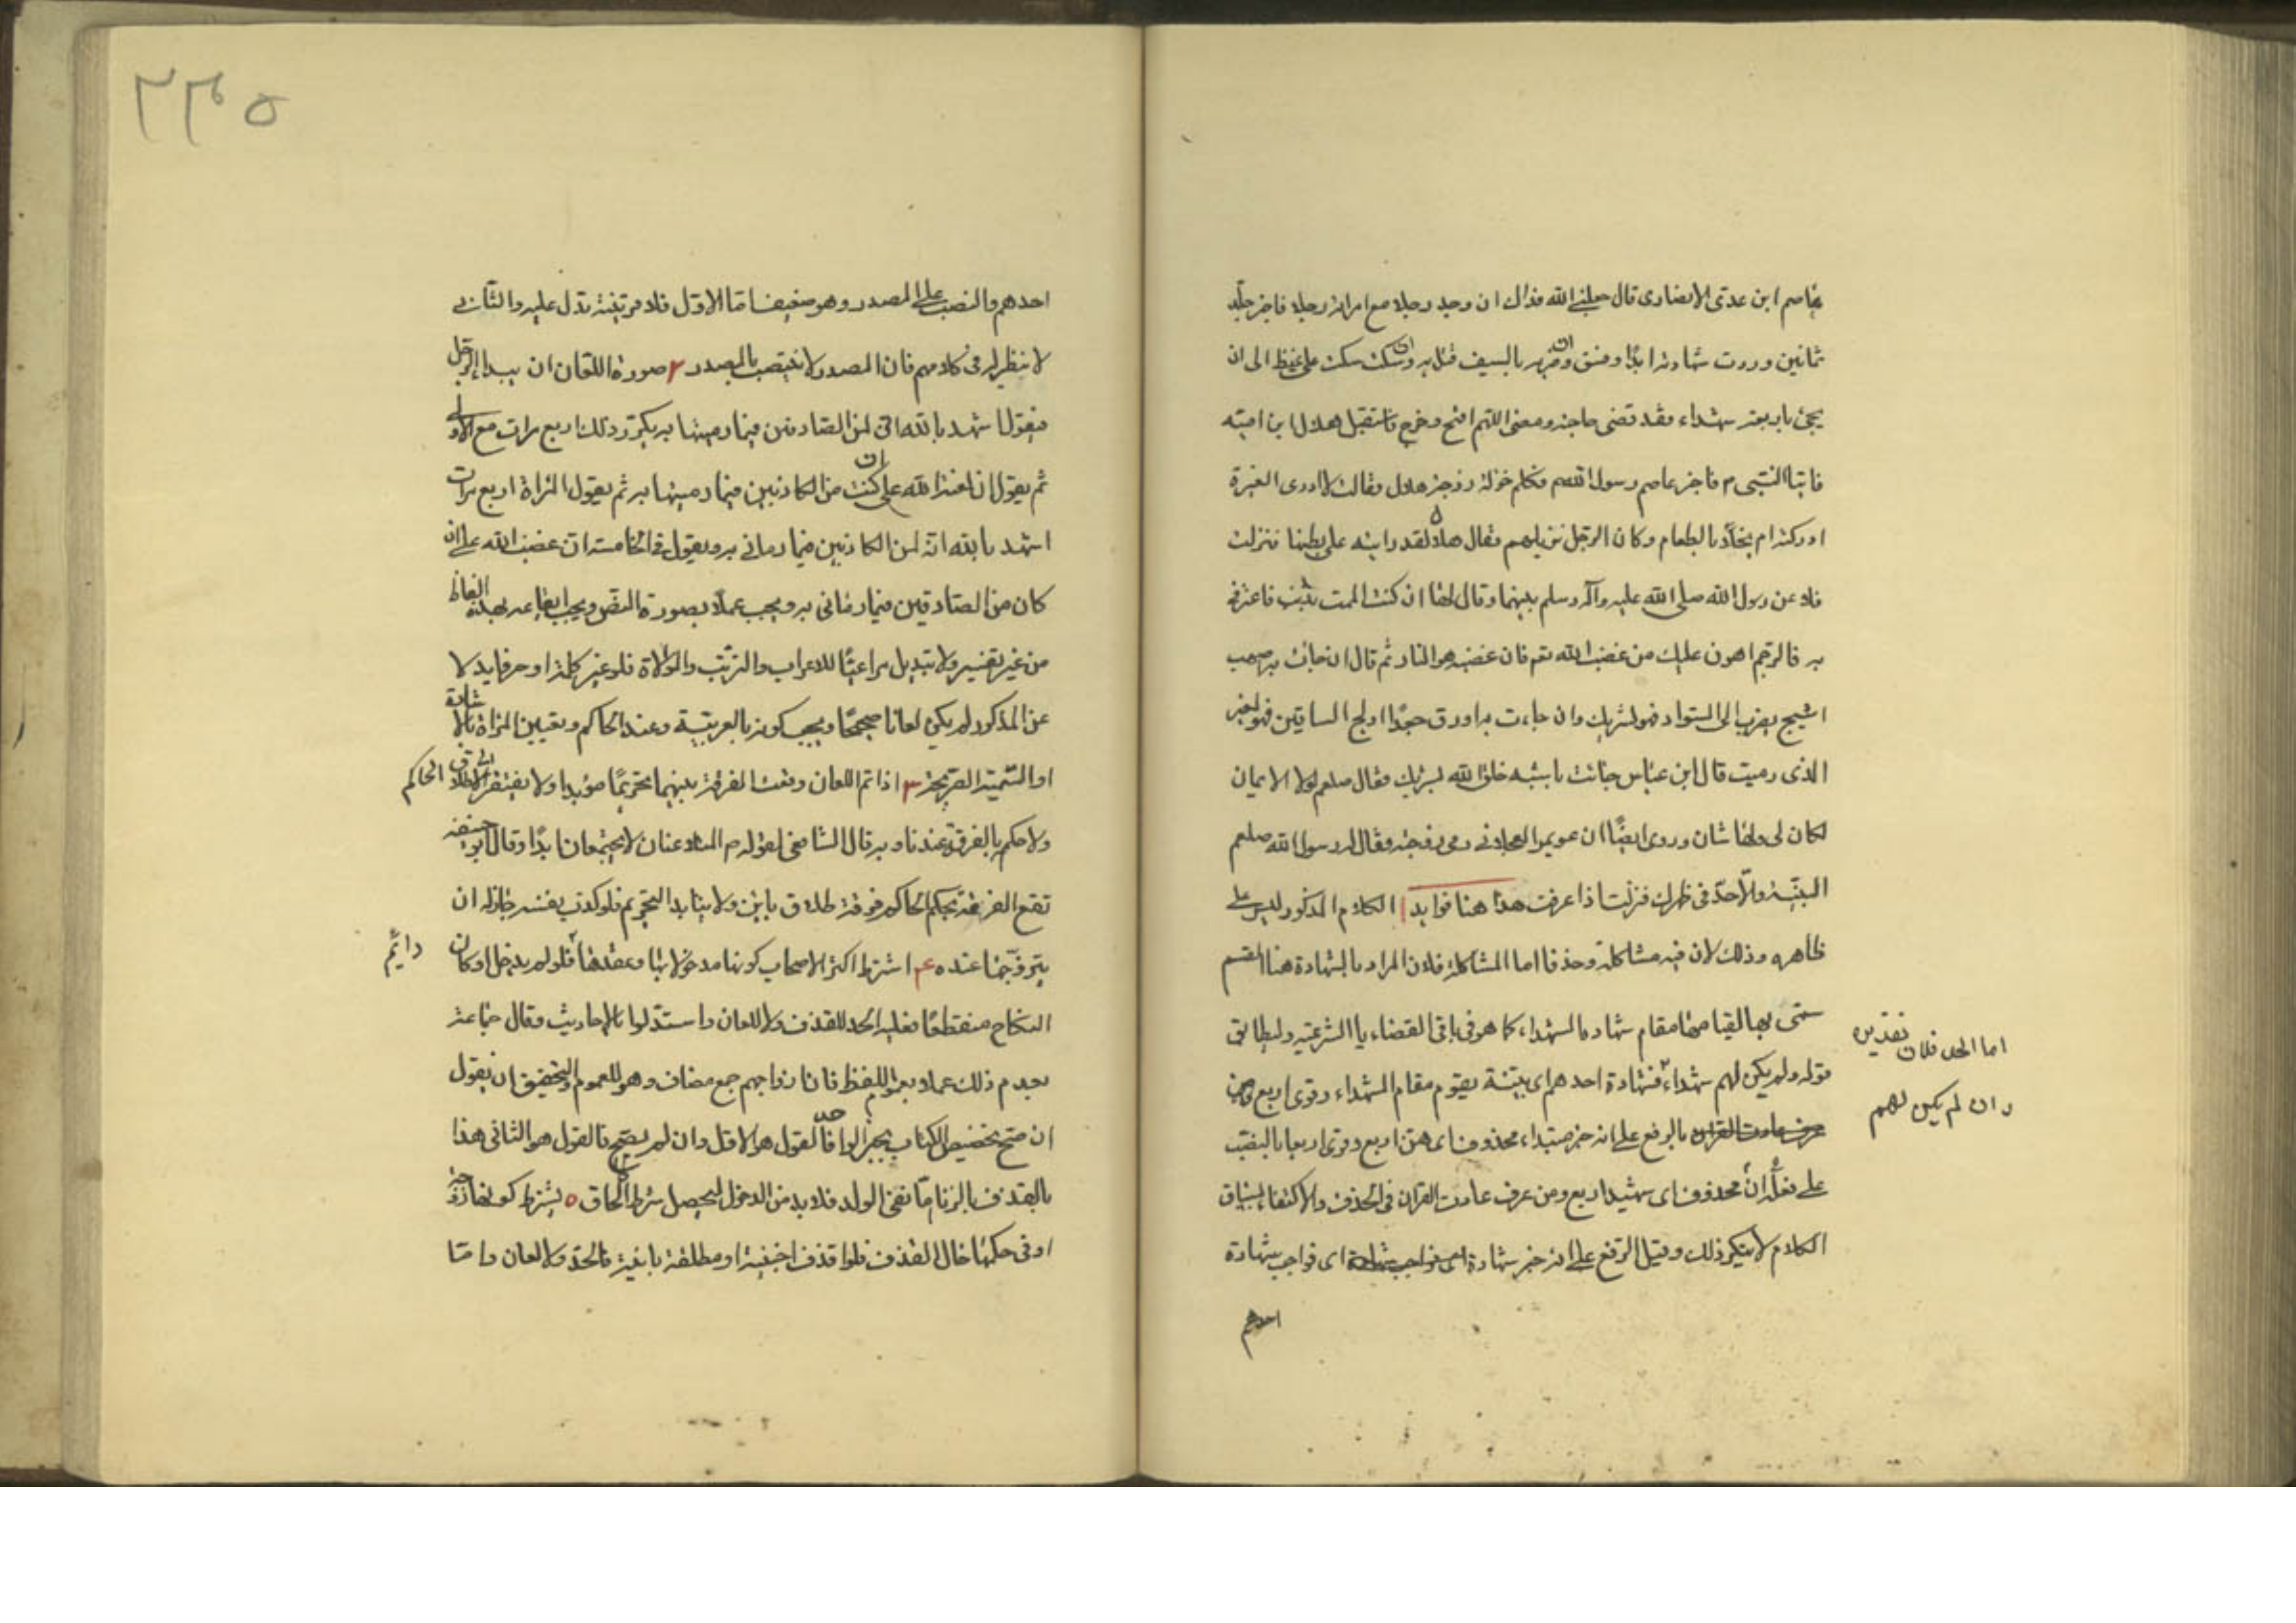 عاصم ابن عدی الانصاری قال جعلنی الله فداك ان وجد رجلا مع امراته رجلا فاخبر جلد
ثمانین وردت شهادته ابدا وفسق وان ضربه بالسیف قتل به وان سكت سكت علی غیظ الی ان
یجئ باربعة شهداء فقد قضی حاجته ومضی اللهم افتح وخرج فاستقبل هلال ابن امیه
فاتیا النبی م فاخبر عاصم رسول الله فكلم خولة زوجة هلال فقالت لا ادری الغیرة
ادركته ام بخلا بالطعام وكان الرجل نزیلهم فقال هلال لقد رایته علی بطنها فنزلت
فلاعن رسول الله صلی الله علیه وآله وسلم بینهما وقال لها ان كنت الممت بذنب فاعترفی
به فالرجم اهون علیك من غضب الله تعم فان غضبه هو النار ثم قال ان جائت به اصهب
اثیبج یضرب الی السواد فهو لشریك وان جاءت به اورق جعدا خدلج الساقین فهو لغیر
الذی رمیت قال ابن عباس جائت باشبه خلق الله لشریك فقال صلعم لولا الایمان
لكان لی ولها شان وروی ایضًا ان عویمرا العجلانی رمی زوجته فقال له رسول الله صلعم
البیّنة والّا حدّ فی ظهرك فنزلت اذا عرفت هذا هنا فوائد ا الكلام المذكور لیس علی
ظاهره وذلك لان فیه مشاكلة وحذفا اما المشاكلة فلان المراد بالشهادة هنا القسم
سمی بها لقیامها مقام شهادة الشهداء كما هو فی باقی القضایا الشرعیه ولیطابق
اما الحذف فلان تقدیره
وان لم یكن لهم
قوله ولم یكن لهم شهداء فشهادة احدهم ای بینة یقوم مقام الشهداء وقری اربع
بالرفع علی انه خبر مبتداء محذوف ای هی اربع وقری اربعا بالنصب
علی محذوف ای یشهد اربع ومن عرف عادت القران فی الحذف والاكتفاء بسیاق
الكلام لا ینكر ذلك وقیل الرفع علی انه خبر شهادة ای فواجب شهادة
احدهم
٢٣٥
احدهم والنصب علی المصدر وهو ضعیف اما الاوّل فلا قرینة تدل علیه والثانی
لا نظیر له فی كلامهم فان المصدر لا ینتصب بالمصدر ٢ صورة اللعان ان یبدا الرجل
فیقول اشهد بالله انی لمن الصادقین فیما رمیتها به یكرّر ذلك اربع مرات مع
ثم یقول ان لعنة الله علی ان كنت من الكاذبین فیما رمیتها به ثم یقول المراة اربع مرات
اشهد بالله انه لمن الكاذبین فیما رمانی به ویقول فی الخامسة ان غضب الله علی ان
كان من الصادقین فیما رمانی به ویجب عملا بصورة النص ویجب ایقاعه بهذه الفاظ
من غیر تغییر ولا تبدیل مراعیًا للاعراب والترتیب والموالاة فلو غیر كلمة او حرفا بدلا
عن المذكور لم یكن لعانا صحیحًا ویجب كونه بالعربیّة وعند الحاكم وتعیین المراة بالاشارة
او التسمیة الصریحة ٣ اذا تم اللعان وقعت الفرقة بینهما تحریمًا مؤبدا ولا یفتقر الی طلاق الحاكم
ولا حكم بالفرقة عندنا وبه قال الشافعی لقوله م المتلاعنان لا یجتمعان ابدًا وقال ابو حنیفه
تقع الفرقة بحكم الحاكم فرقة طلاق باین ولا یتابد التحریم فلو كذب نفسه جاز له ان
یتزوّجها عنده ع‍ اشترط اكثر الاصحاب كونها مدخولا بها وعقدها دایم فلو لم یدخل او كان
النكاح منقطعًا فعلیه الحد للقذف ولا لعان واستدلوا بالاحادیث وقال جماعة
بعدم ذلك عملا بعموم اللفظ فان ازواجهم جمع مضاف وهو للعموم والتحقیق ان یقول
ان صح تخصیص الكتاب بخبر الواحد فالقول هو الاوّل وان لم یصح فالقول هو الثانی هذا
بالقذف بالزنا امّا نفی الولد فلا بد من الدخول لیحصل شرط الالحاق ٥ یشترط كونها زوجة
او فی حكمها حال القذف فلو قذف اجنبیة او مطلقة باینة فالحد ولا لعان واما